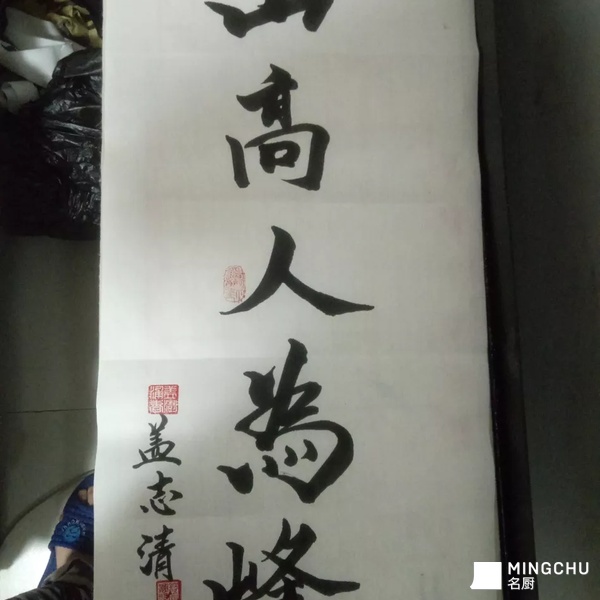 山高人為峰
盖志清
MINGCHU
名厨